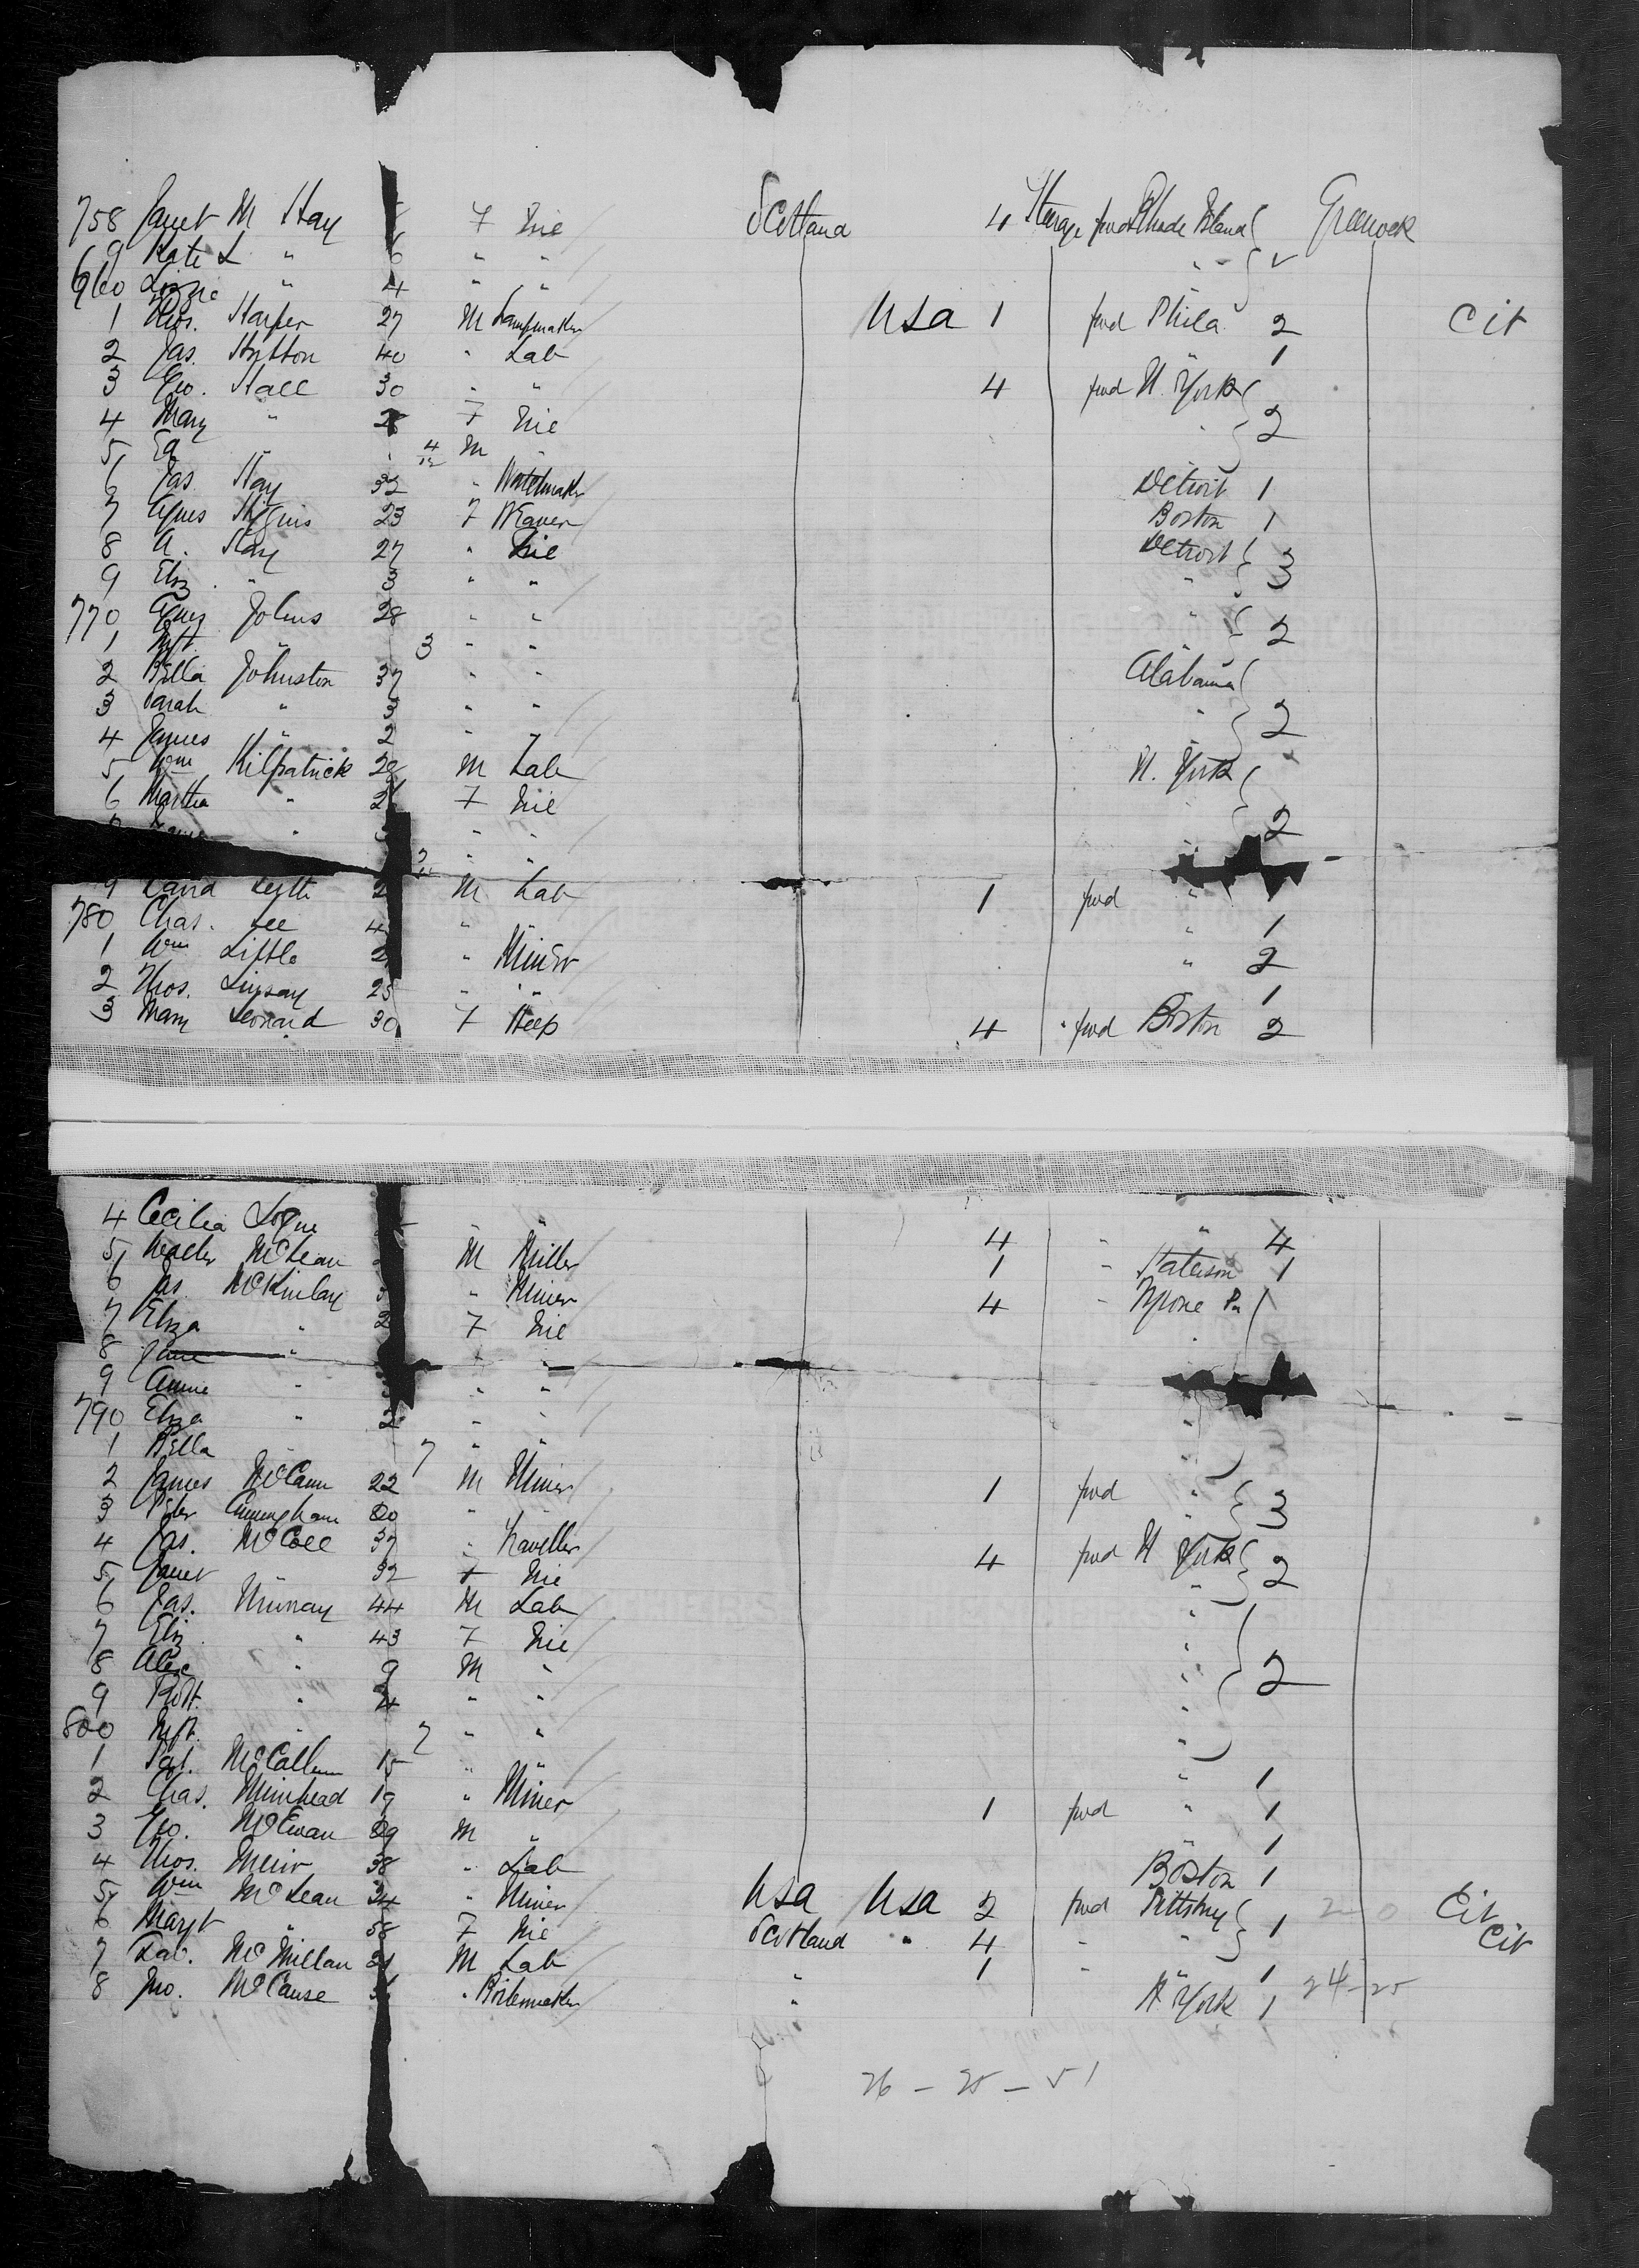 758 Janet M Hay 7 Nie Scotland 4 Steerage fwd Rhode Island Greenock
9 Kate L " 6 " " "
760 Lizzie " 4 " "
1 Thos. Harper 27 M Lampmaker USA 1 fwd Phila 2 Cit
2 Jas. Hutton 40 " Lab " 1
3 Geo. Hall 30 " " 4 fwd N. York
4 Mary " 28 F Nie " 2
5 Ed " 4/12 M "
6 Jas. Hay 32 " Watchmaker Detroit 1
7 Agnes Higgins 23 F Weaver Boston 1
8 A. Hay 27 " Nie Detroit 3
9 Eliz. " 3 " " "
770 Agnes Johns 28 " " " 2
1 Inft. " 3 " " "
2 Bella Johnston 37 " " Alabama
3 Sarah " 3 " " " 2
4 James " 2 " "
5 Wm Kilpatrick 28 M Lab N. York
6 Martha " 2 F Nie " 2
" " "
9 David 2 M Lab 1 fwd "
780 Chas. Lee 4 " " " 1
1 Wm Little 2 " Miner " 2
2 Thos. Linsay 25 " " 1
3 Mary Leonard 30 F Keep 4 fwd Boston 2
4 Cecilia Logue " " 4 " " 4
5 Walter McLean M Miller 1 " Paterson 1
6 Jas. McKinlay 3 " Miner 4 " Tyrone Pa
7 Eliza " 2 F Nie "
8 Jane " " "
9 Annie " " "
790 Eliza " 2 " " "
1 Bella " 7 " " "
2 James McCann 22 M Miner 1 fwd " 3
3 Peter Cunningham 20 " " "
4 Jas. McColl 37 " Traveller 4 fwd N York 2
5 Janet " 32 F Nie "
6 Jas. Murray 44 M Lab "
7 Eliz " 43 F Nie "
8 Alex " 9 M " " 2
9 Robt. " 4 " " "
800 Inft. " 7 " " "
1 Pat. McCallum 15 " " " 1
2 Chas. Muirhead 19 " Miner 1 fwd " 1
3 Geo. McEwan 29 M " " 1
4 Thos. Meir 38 " Lab Boston 1
5 Wm McLean 34 " Miner USA USA 2 fwd Pittsburg 1 Cit
6 Margt " 38 F Nie Scotland " 4 " " Cit
7 Dav. McMillan 21 M Lab " 1 " " 1
8 Jno. McCause 3 " Boilermaker " N York 1 24-25
26 - 25 - 51